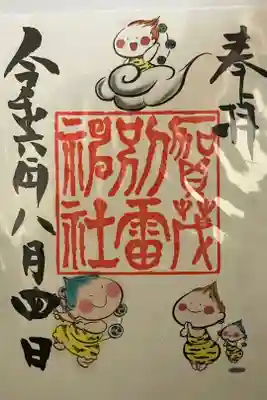 奉拝
賀茂
別雷
神社
令和六年八月四日